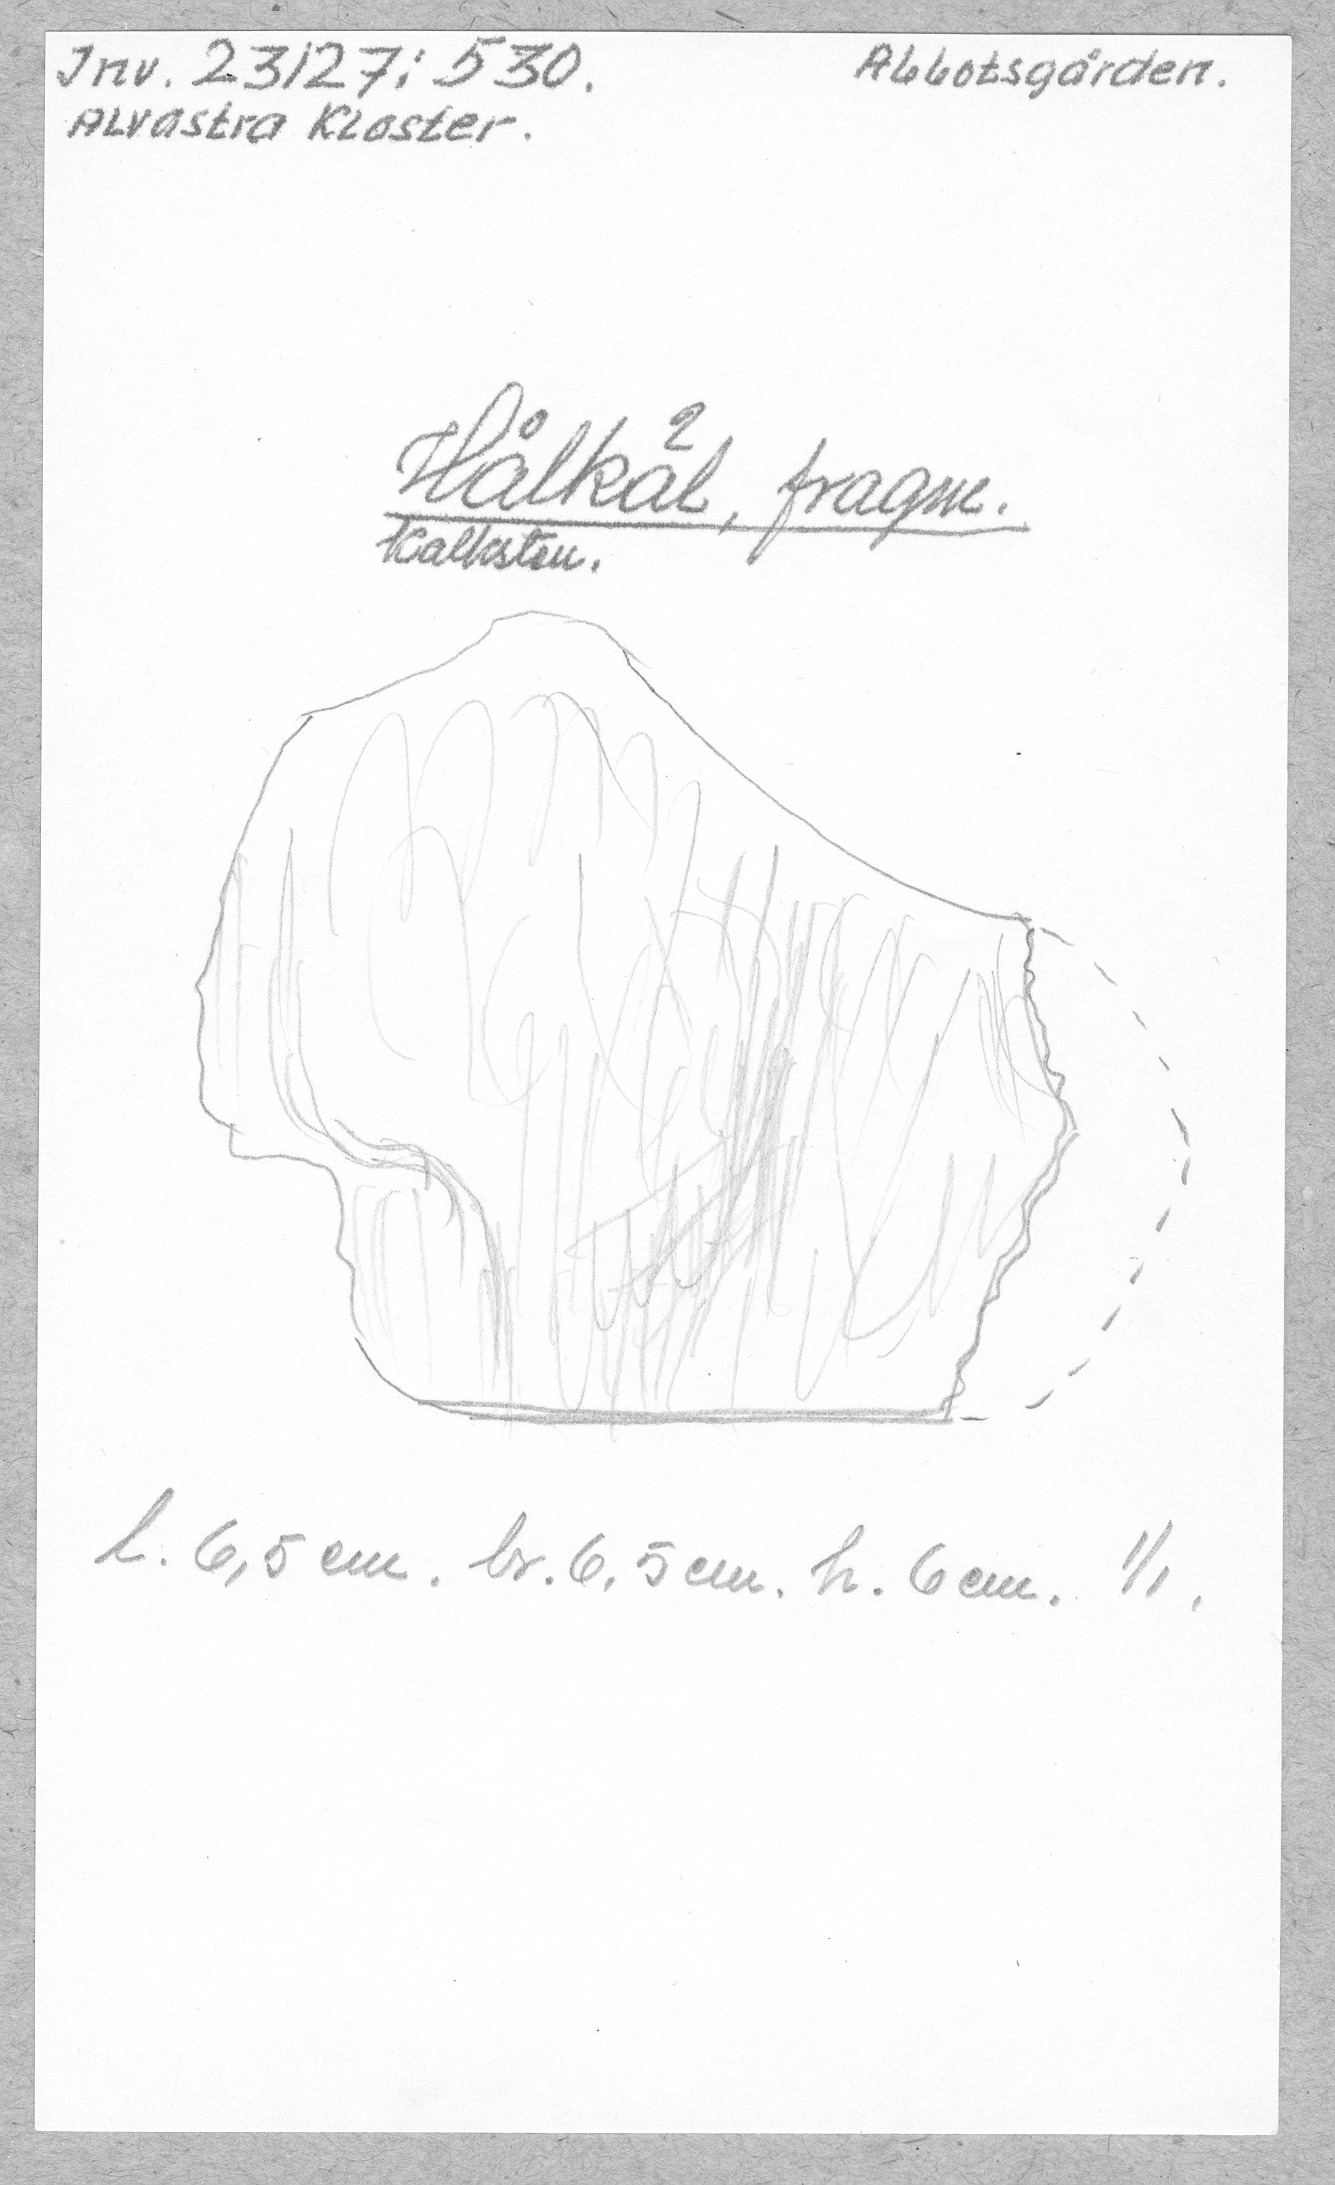 Inv. 23127:530.
Abbotsgården.
Alvastra Kloster.
Hålkål, fragm.
Kalksten.
L. 6,5 cm. br. 6,5 cm. h. 6 cm. 1/1.